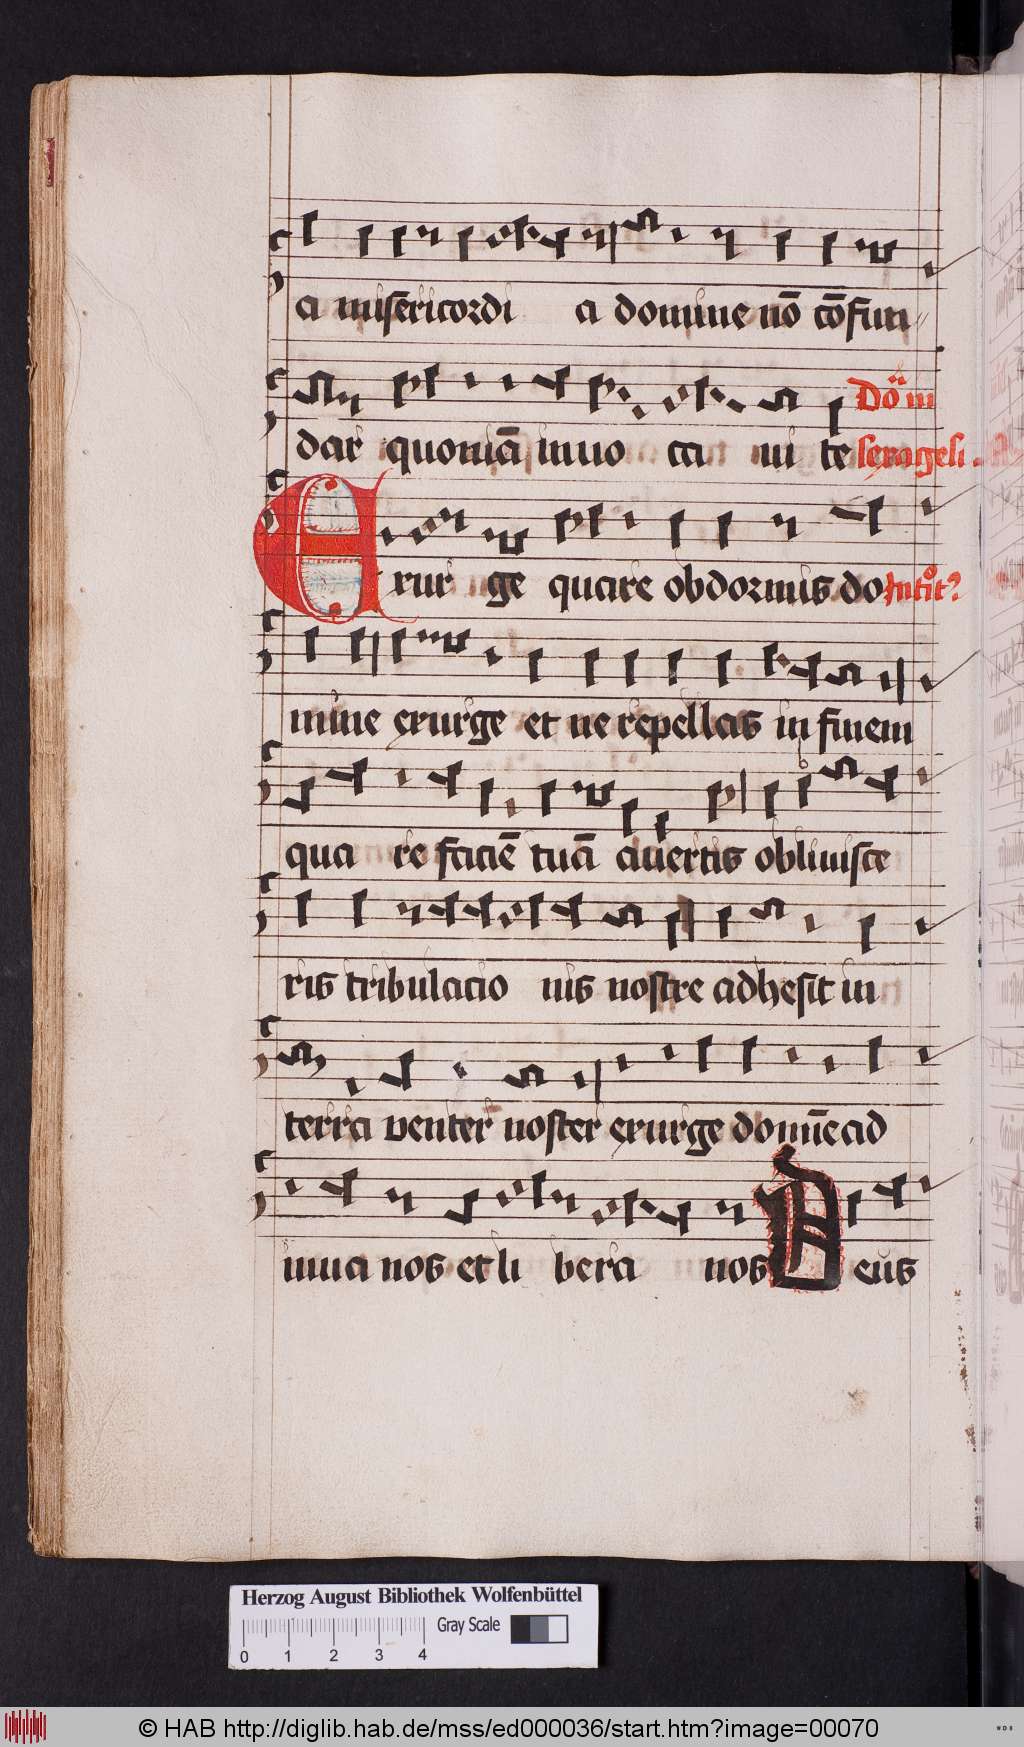 a misericordi a domine nō cōfun
Dōm
dar quoniā inuo ca ui te sexagesi.
Exur ge quare obdormis do
mine exurge et ne repellas in finem
qua re faciē tuā auertis obliuisce
ris tribulacio nis nostre adhesit in
terra venter noster exurge domīe ad
iuua nos et li bera nos Deus
Herzog August Bibliothek Wolfenbüttel
Gray Scale
0 1 2 3 4
© HAB http://diglib.hab.de/mss/ed000036/start.htm?image=00070